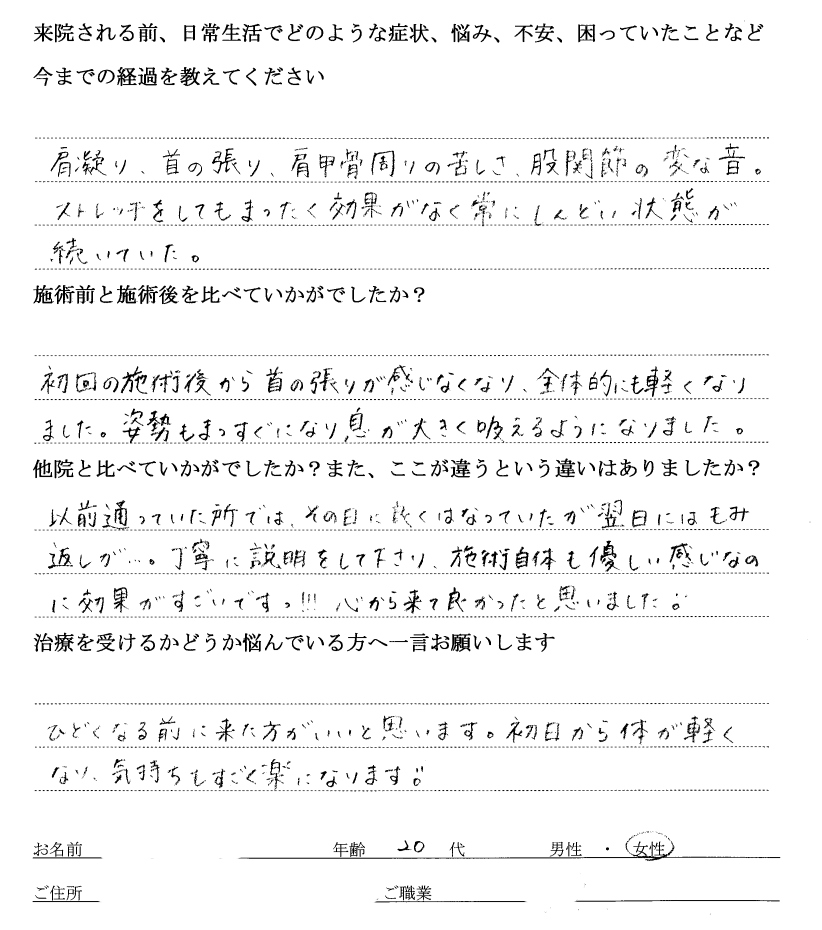 来院される前、日常生活でどのような症状、悩み、不安、困っていたことなど
今までの経過を教えてください
肩凝り、首の張り、肩甲骨周りの苦しさ、股関節の変な音。
ストレッチをしてもまったく効果がなく常にしんどい状態が
続いていた。
施術前と施術後を比べていかがでしたか？
初回の施術後から首の張りが感じなくなり、全体的にも軽くなり
ました。姿勢もまっすぐになり息が大きく吸えるようになりました。
他院と比べていかがでしたか？また、ここが違うという違いはありましたか？
以前通っていた所では、その日に良くはなっていたが翌日にはもみ
返しが…。丁寧に説明をして下さり、施術自体も優しい感じなの
に効果がすごいですっ!!! 心から来て良かったと思いました。
治療を受けるかどうか悩んでいる方へ一言お願いします
ひどくなる前に来た方がいいと思います。初日から体が軽く
なり、気持ちもすごく楽になります。
お名前 年齢 20 代 男性 ・ 女性
ご住所 ご職業